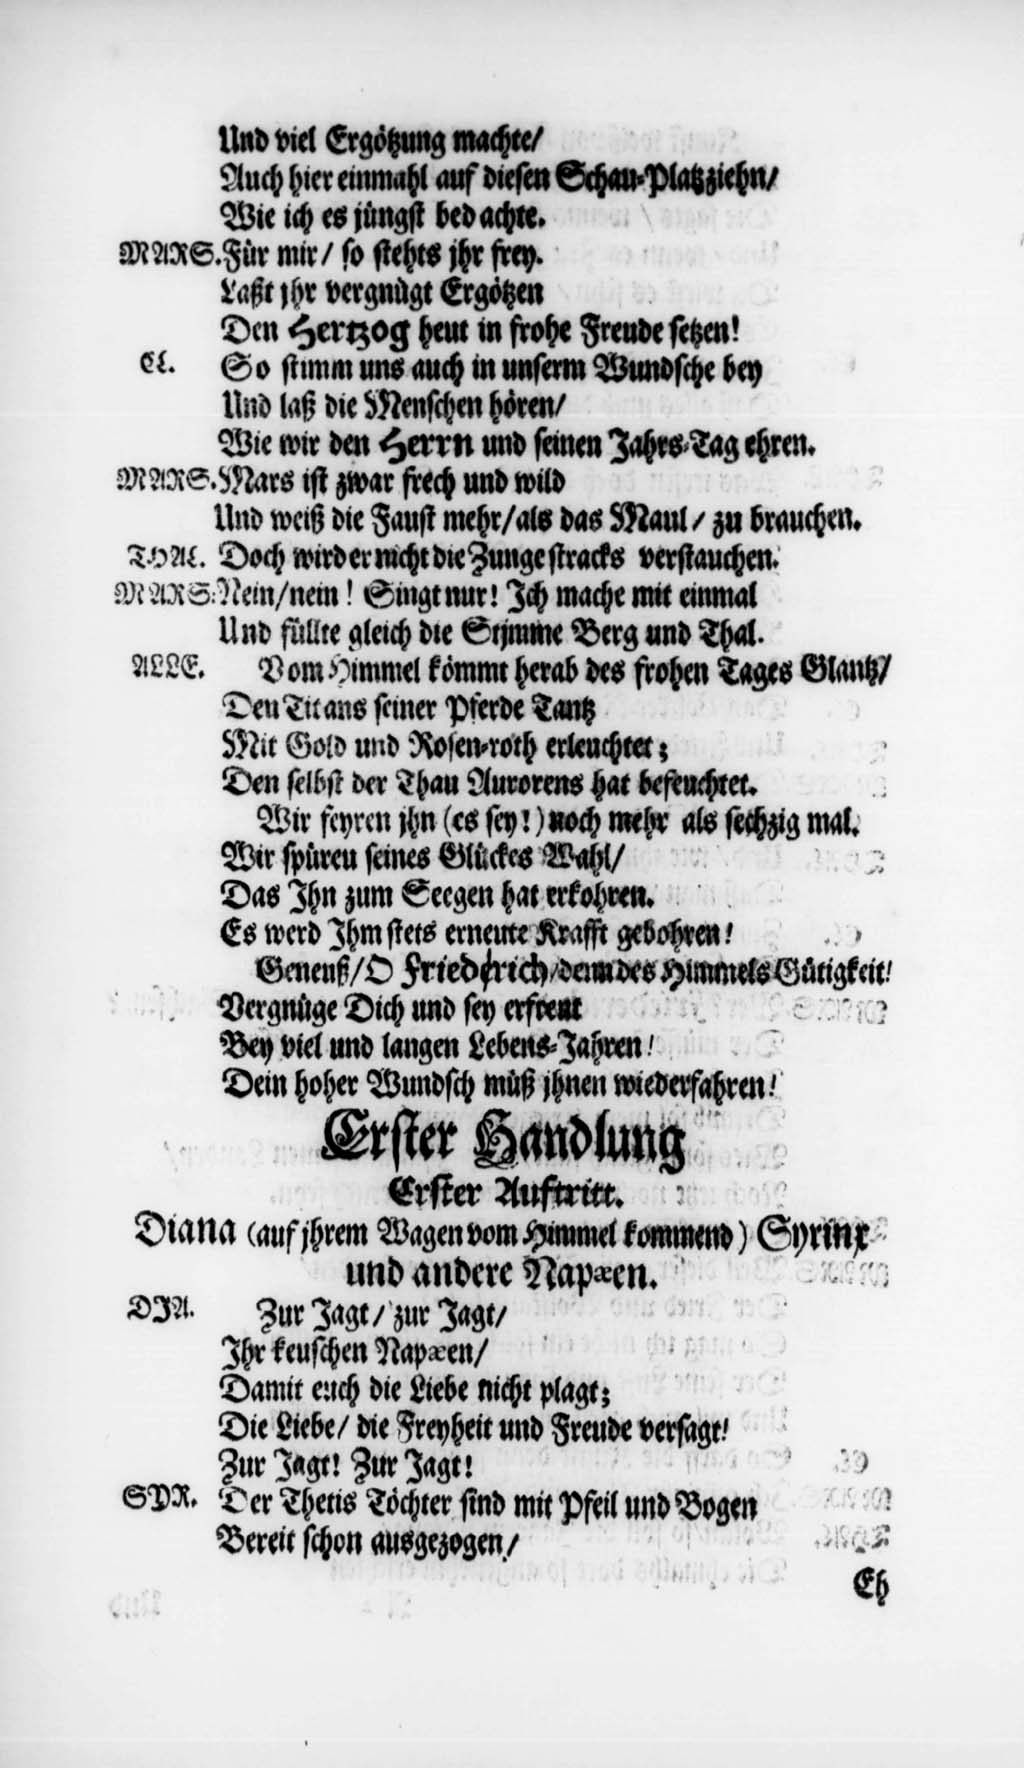 Und viel Ergötzung machte/
Auch hier einmahl auf diesen Schau-Platz ziehn/
Wie ich es jüngst bedachte.
MARS. Für mir/ so stehts jhr frey.
Laßt jhr vergnügt Ergötzen
Den Hertzog heut in frohe Freude setzen!
CL. So stimm uns auch in unserm Wundsche bey
Und laß die Menschen hören/
Wie wir den Herrn und seinen Jahrs-Tag ehren.
MARS. Mars ist zwar frech und wild
Und weiß die Faust mehr/als das Maul/ zu brauchen.
THAL. Doch wird er nicht die Zunge stracks verstauchen.
MARS. Nein/nein! Singt nur! Ich mache mit einmal
Und füllte gleich die Stjmme Berg und Thal.
ALLE. Vom Himmel kömmt herab des frohen Tages Glantz/
Den Titans seiner Pferde Tantz
Mit Gold und Rosen-roth erleuchtet;
Den selbst der Thau Aurorens hat befeuchtet.
Wir feyren jhn (es sey!) noch mehr als sechzig mal.
Wir spüren seines Glückes Wahl/
Das Ihn zum Seegen hat erkohren.
Es werd Ihm stets erneute Krafft gebohren!
Geneuß/O Friederich/denn des Himmels Gütigkeit!
Vergnüge Dich und sey erfreut
Bey viel und langen Lebens-Jahren!
Dein hoher Wundsch müß jhnen wiederfahren!
Erster Handlung
Erster Auftritt.
Diana (auf jhrem Wagen vom Himmel kommend) Syrinx
und andere Napæen.
DIA. Zur Jagt/ zur Jagt/
Ihr keuschen Napæen/
Damit euch die Liebe nicht plagt;
Die Liebe/ die Freyheit und Freude versagt!
Zur Jagt! Zur Jagt!
SYR. Der Thetis Töchter sind mit Pfeil und Bogen
Bereit schon ausgezogen/
Eh